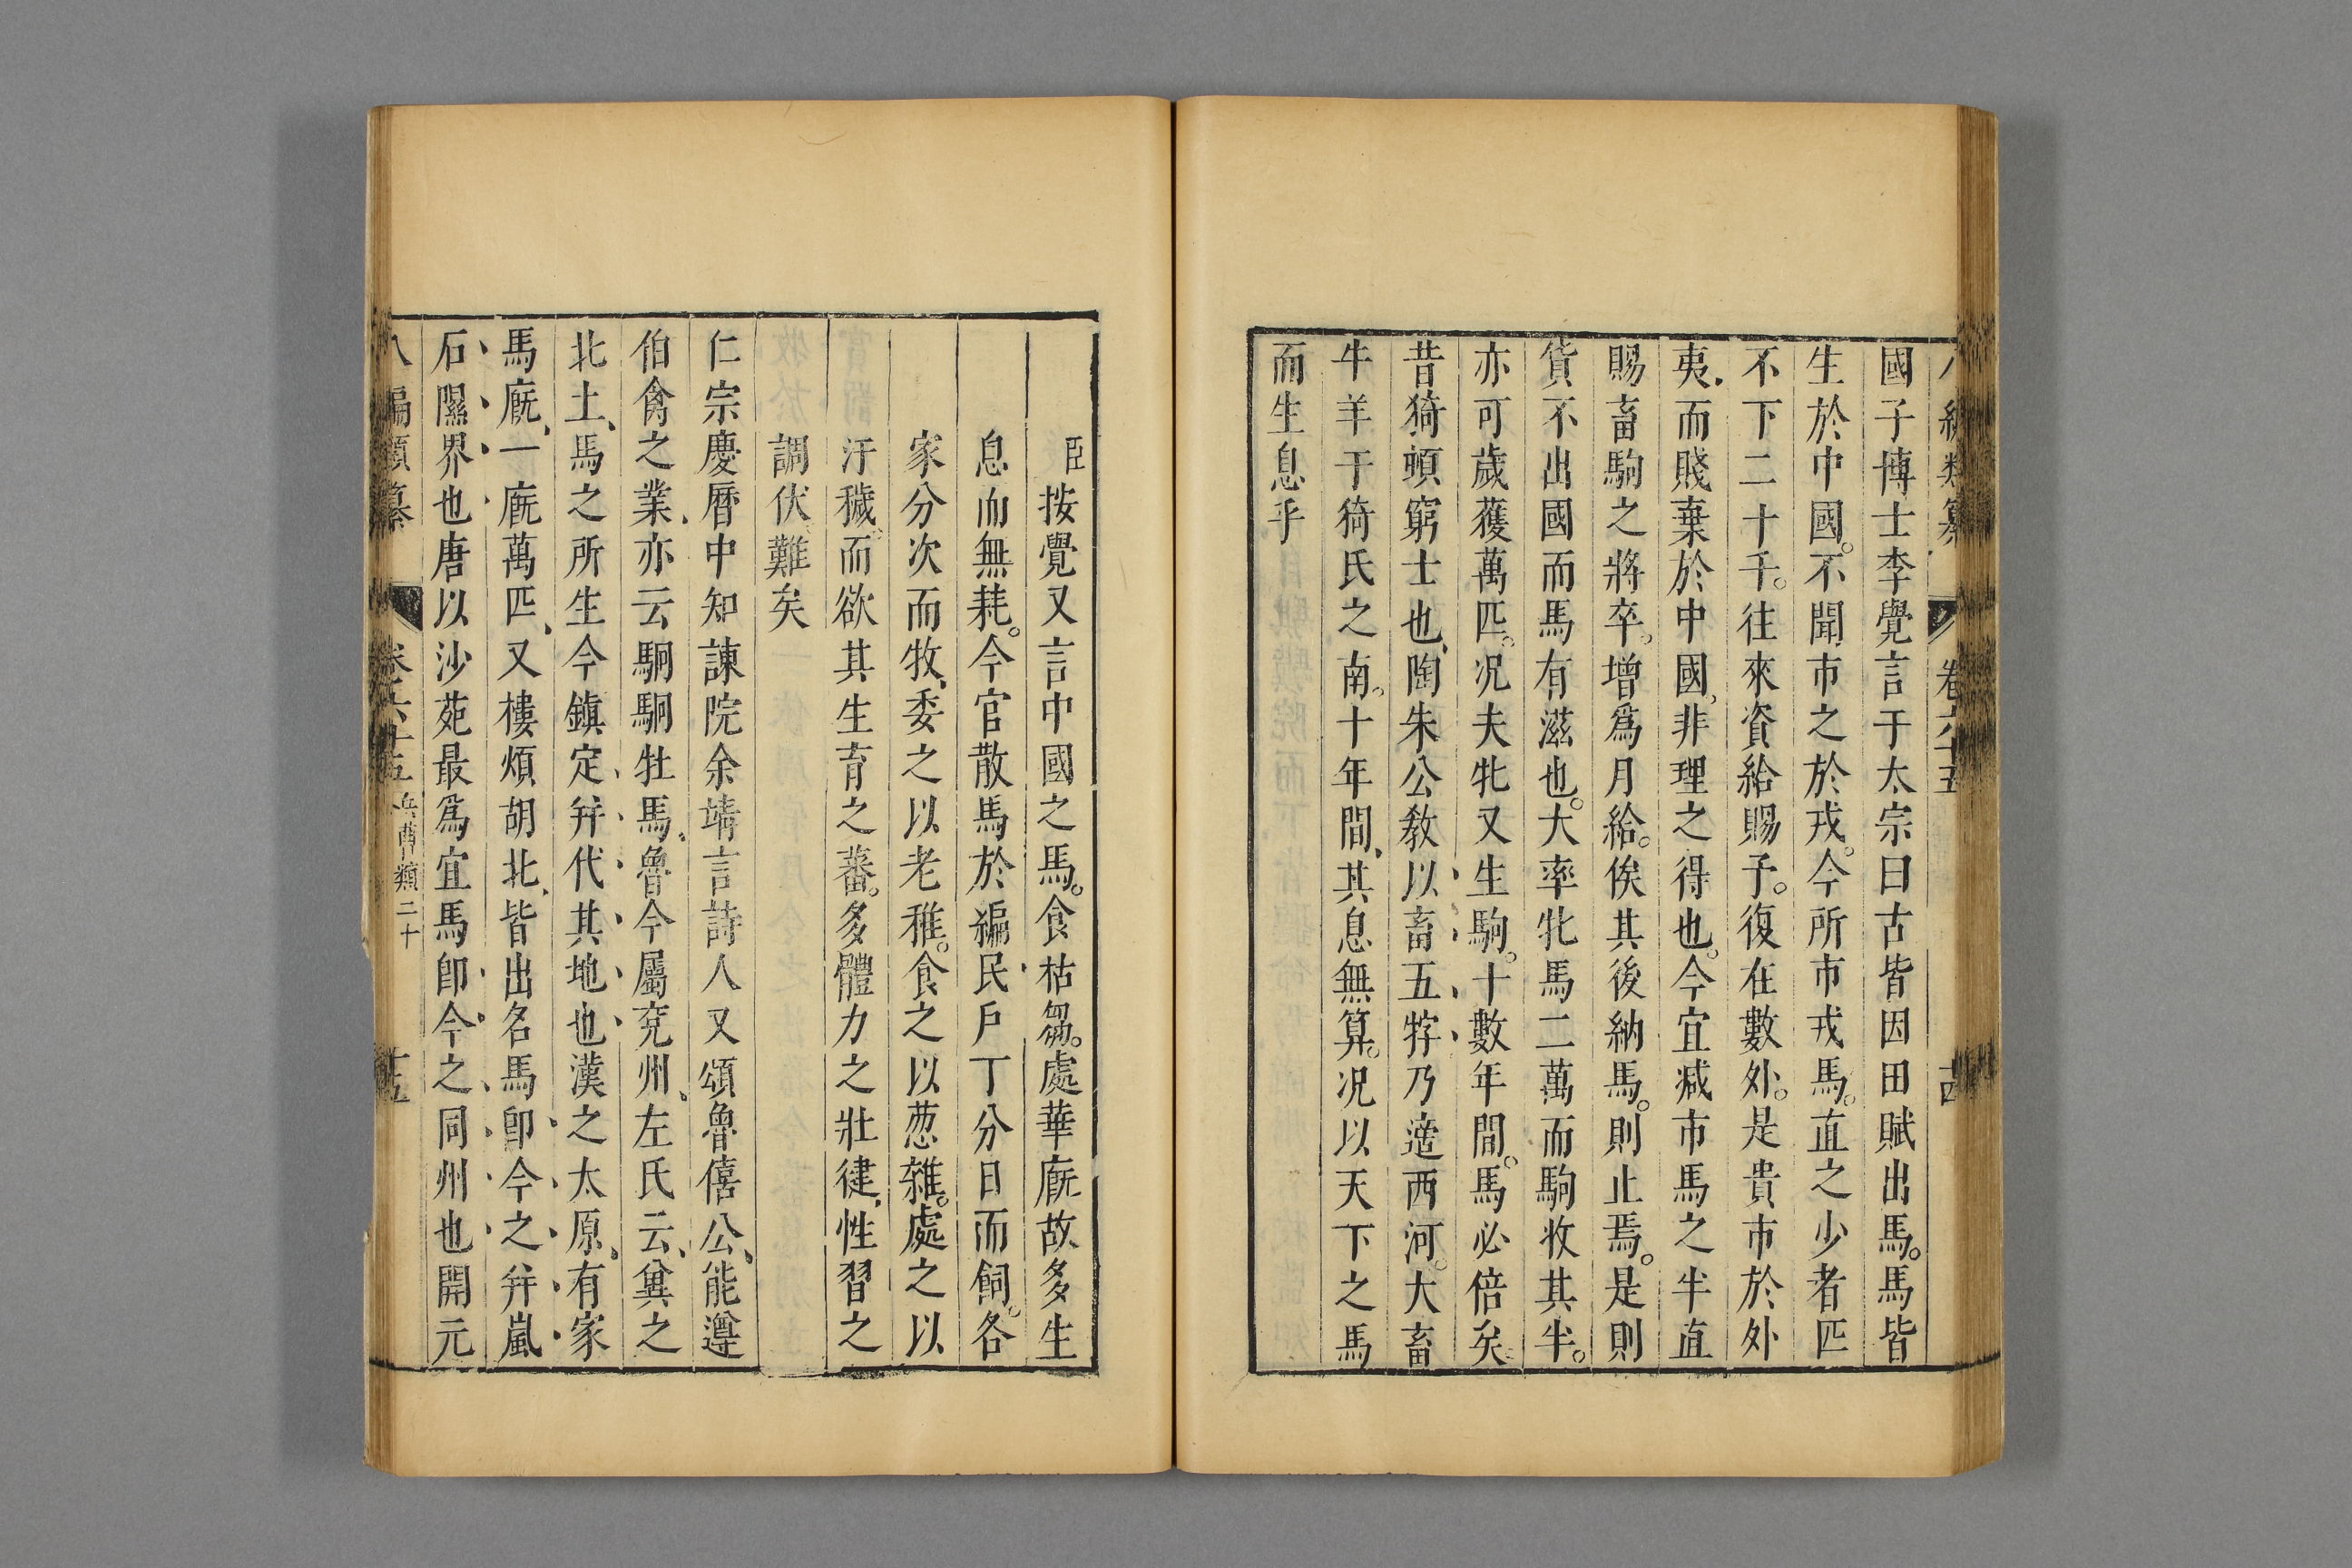 國子博士李覺言于太宗曰古皆因田賦出馬。馬皆
生於中國。不聞市之於戎。今所市戎馬。直之少者匹
不下二十千。往來資給賜予。復在數外。是貴市於外
夷、而賤棄於中國、非理之得也。今宜减市馬之半直
賜畜駒之將卒。增爲月給。俟其後納馬。則止焉。是則
貨不出國而馬有滋也。大率牝馬二萬而駒收其半。
亦可歲獲萬匹。况夫牝又生駒。十數年間。馬必倍矣
昔猗頓窮士也、陶朱公敎以畜五牸乃適西河。大畜
牛羊于猗氏之南。十年間、其息無算。况以天下之馬
而生息乎
臣按覺又言中國之馬。食枯芻。處華廐故多生
息而無耗。今官散馬於編民戶丁分日而飼。各
家分次而牧、委之以老稚。食之以葱雜。處之以
汙穢。而欲其生育之蕃。多體力之壯徤、性習之
調伏難矣
仁宗慶曆中知諫院余靖言詩人又頌魯僖公、能遵
伯禽之業、亦云駉駉牡馬、魯今屬兖州、左氏云、兾之
北土、馬之所生今鎮定并代其地也漢之太原、有家
馬廐、一廐萬匹、又樓煩胡北、皆出名馬卽今之并嵐
石隰界也唐以沙苑最爲宜馬卽今之同州也開元
八編類纂 卷六十五 兵曹類二十 十五